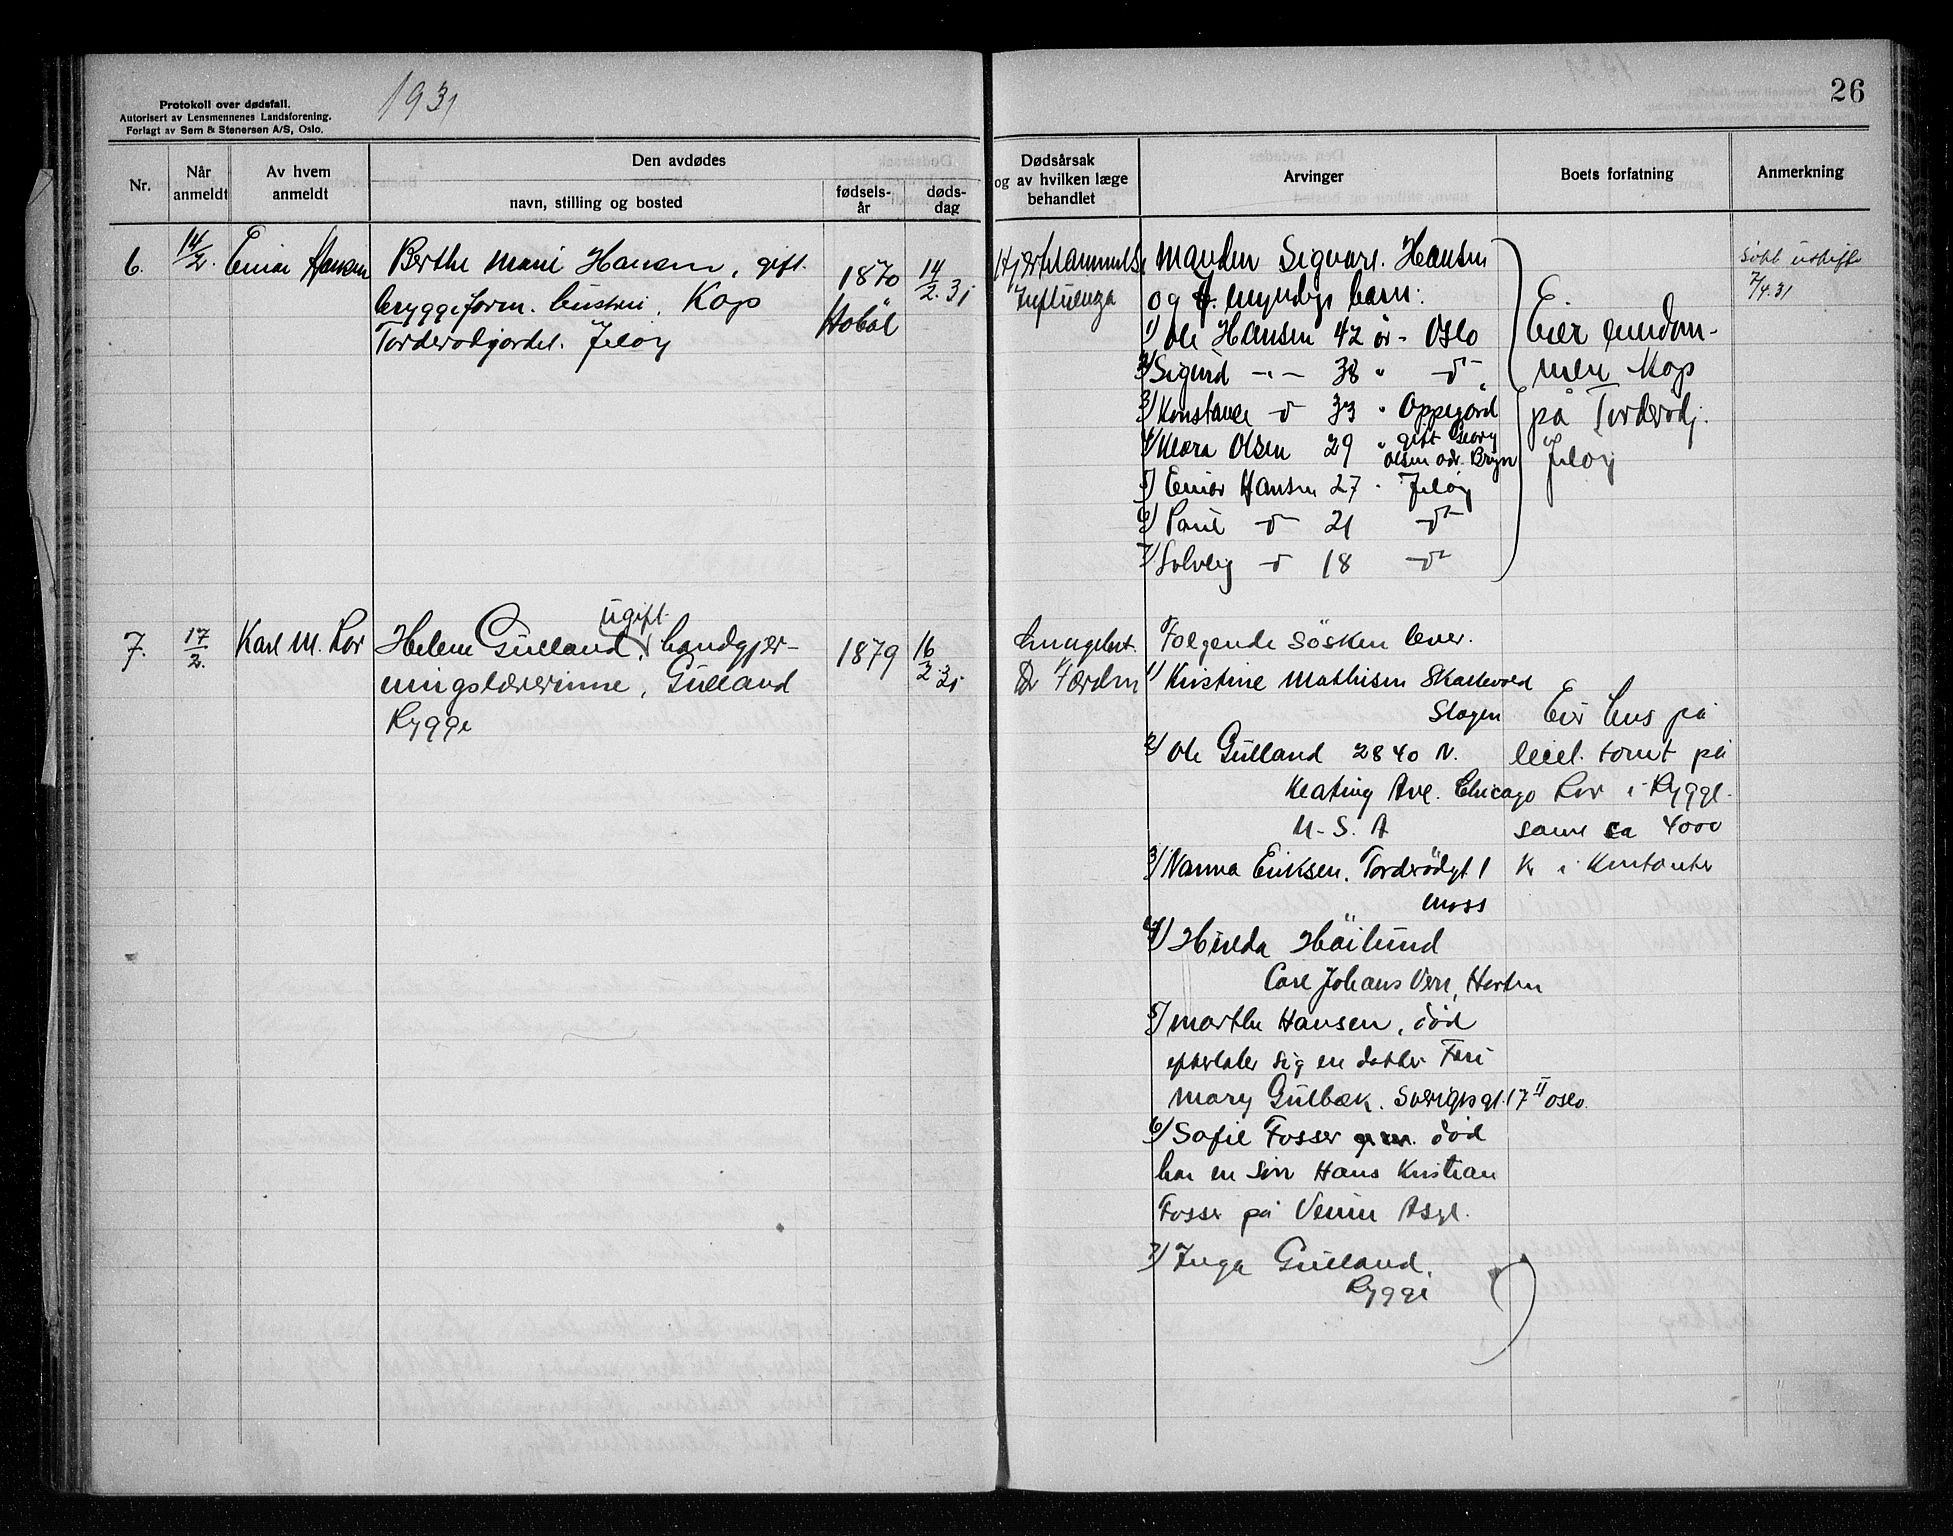 1931
26
Protokoll over dødsfall.
Autorisert av Lensmennenes Landsforening.
Forlagt av Sem & Stenersen A/S, Oslo.
Nr.
Når anmeldt
Av hvem anmeldt
Den avdødes
navn, stilling og bosted
fødsels-år
døds-dag
Dødsårsak og av hvilken læge behandlet
Arvinger
Boets forfatning
Anmerkning
6.
14/2.
Einar Hansen
Berthe Marie Hansen, gift.
bryggeform. hustru, Kop
Torderødgordet. Jeløy
1870
Hobøl
14/2. 31
Influenza
Manden Sigvart Hansen
og 7. myndige barn:
1) Ole Hansen 42 år - Oslo
2) Sigurd -"- 38 "
3) Konstance 33 " Oppegård
4) Klara Olsen 29 " gift Georg
Olsen adr. Bryn
5) Einar Hansen 27 " Jeløy
6) Paul 21
7) Solveig 18
Eier eiendom-
men Kop
på Torderødg.
Jeløy
Søkt uskifte
7/4.31
7.
17/2.
Karl M. Lor
ugift
Helene Gulland, handgjer-
ningslærerinne, Gulland
Rygge
1879
16/2 31
Lungebet.
Dr Færden
Følgende søsken lever.
1) Kristine Mathisen Skallevold
Slagen
2) Ole Gulland 2840 N.
Keating Ave. Chicago
U. S. A
3) Nanna Eriksen. Torderødgt 1
Moss
4) Hilda Høilund
Carl Johans Vern, Horten
5) Marthe Hansen, død
efterlater sig en datter Fru
Mary Gulbæk. Sverigsgt. 17 II Oslo.
6) Sofie Fosser død
har en sön Hans Kristian
Fosser på Venin Asyl.
7) Inga Gulland,
Rygge
Eier hus på
leiet tomt på
Lor i Rygge.
samt ca 4000
kr i kontanter